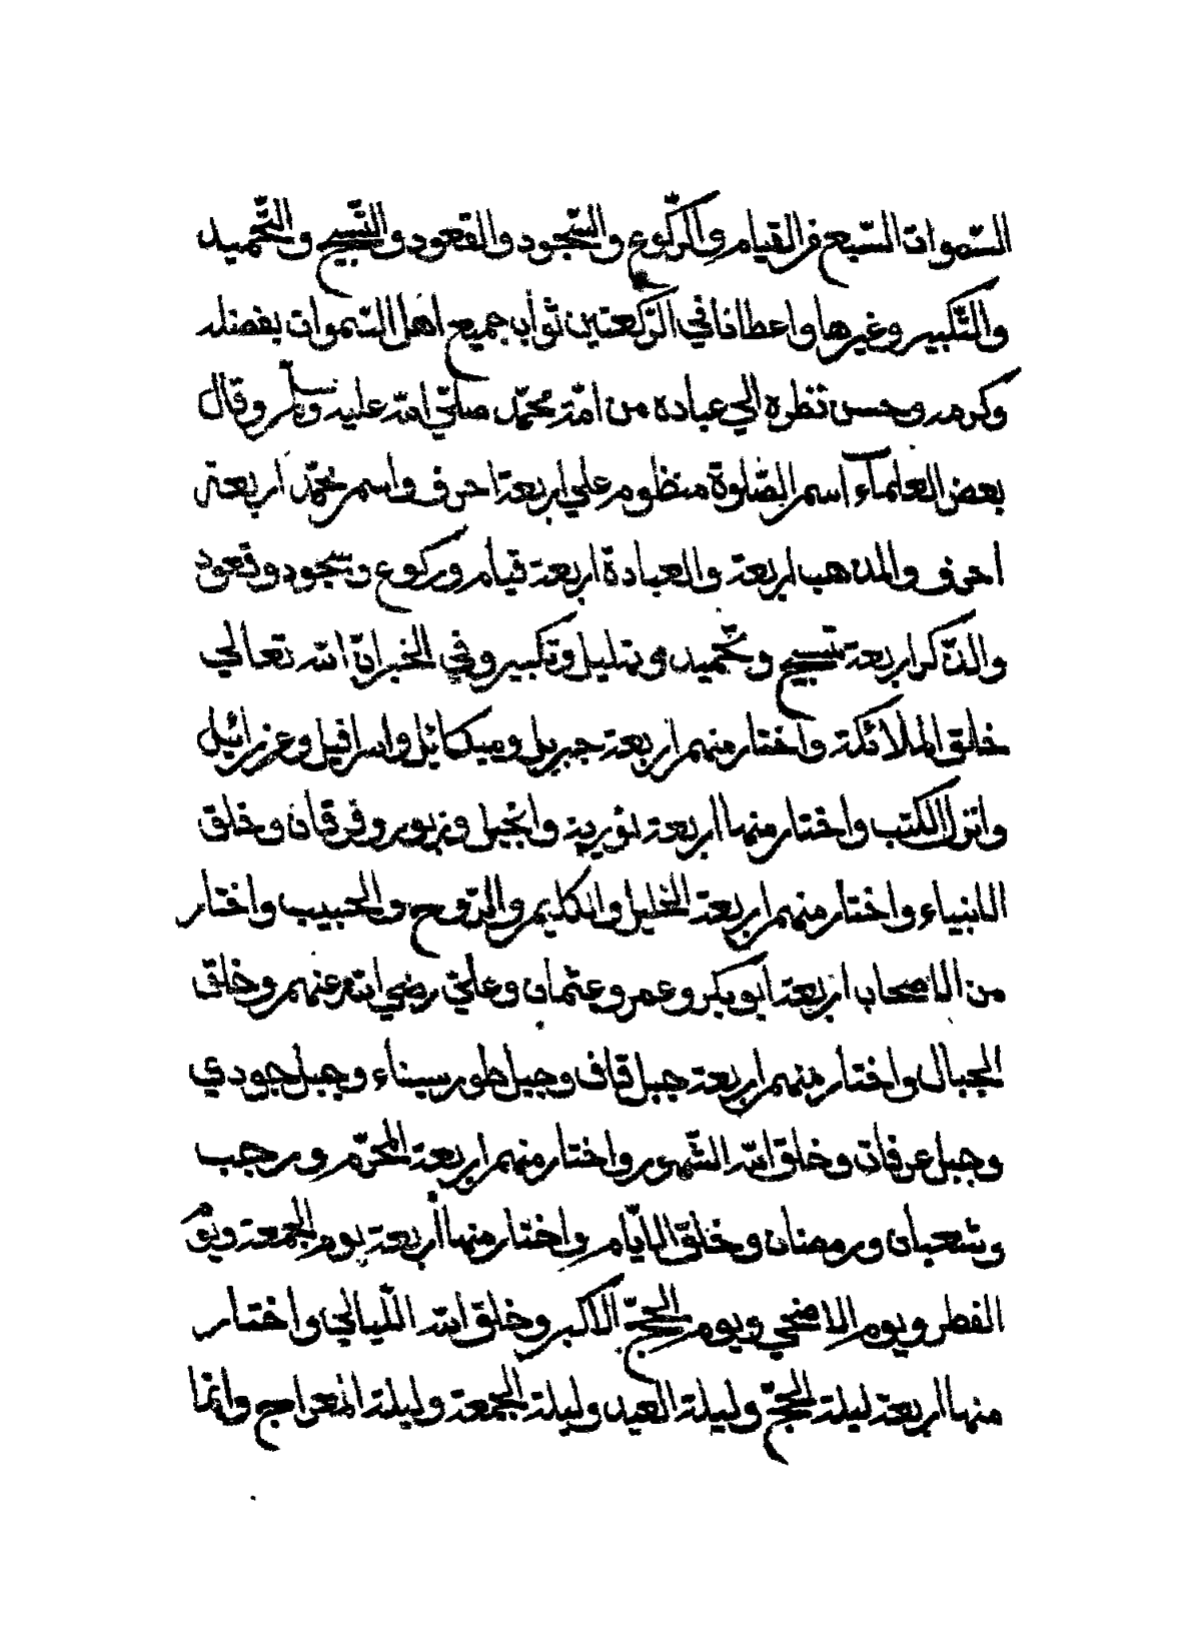 السّموات السّبع من القيام والرّكوع والسّجود والقعود والتّسبيح والتّحميد
والتّكبير وغيرها واعطانا في الرّكعتين ثواب جميع اهل السّموات بفضله
وكرمه وحسن نظره الي عباده من امّة محمّد صلّي اللّه عليه وسلّم وقال
بعض العلمآء اسم الصّلوة منظوم علي اربعة احرف واسم محمّد اربعة
احرف والمذهب اربعة والعبادة اربعة قيام وركوع وسجود وقعود
والذّكر اربعة تسبيح وتحّميد وتهليل وتكبير وفي الخبر انّ اللّه تعالي
خلق الملائكة واختار منهم اربعة جبريل وميكائل واسرافيل وعزرائيل
وانزل الكتب واختار منها اربعة تورية وانجيل وزبور وفرقان وخلق
الانبياء واختار منهم اربعة الخليل والكليم والرّوح والحبيب واختار
من الاصحاب اربعة ابو بكر وعمر وعثمان وعليّ رضي اللّه عنهم وخلق
الجبال واختار منهم اربعة جبل قاف وجبل طور سيناء وجبل جودي
وجبل عرفات وخلق اللّه الشّهور واختار منهم اربعة المحرّم ورجب
وشعبان ورمضان وخلق الايّام واختار منها اربعة يوم الجمعة ويوم
الفطر ويوم الاضحي ويوم الحجّ الاكبر وخلق اللّه اللّيالي واختار
منها اربعة ليلة الحجّ وليلة العيد وليلة الجمعة وليلة المعراج وانّما